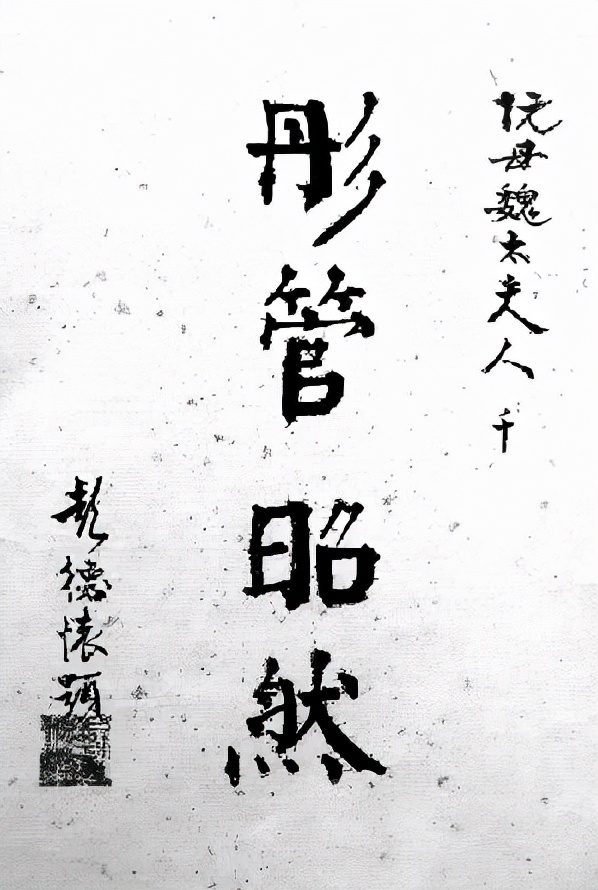 阮母魏太夫人 千
彤管昭然
彭德懷題